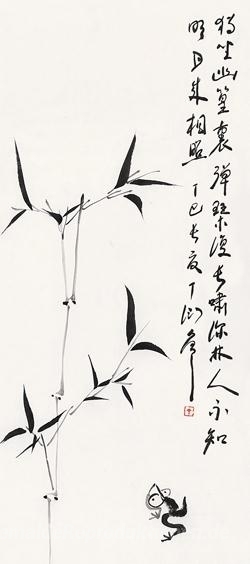 独坐幽篁裏弹琴復长啸深林人不知
明月来相照 丁巳长夏丁衍庸